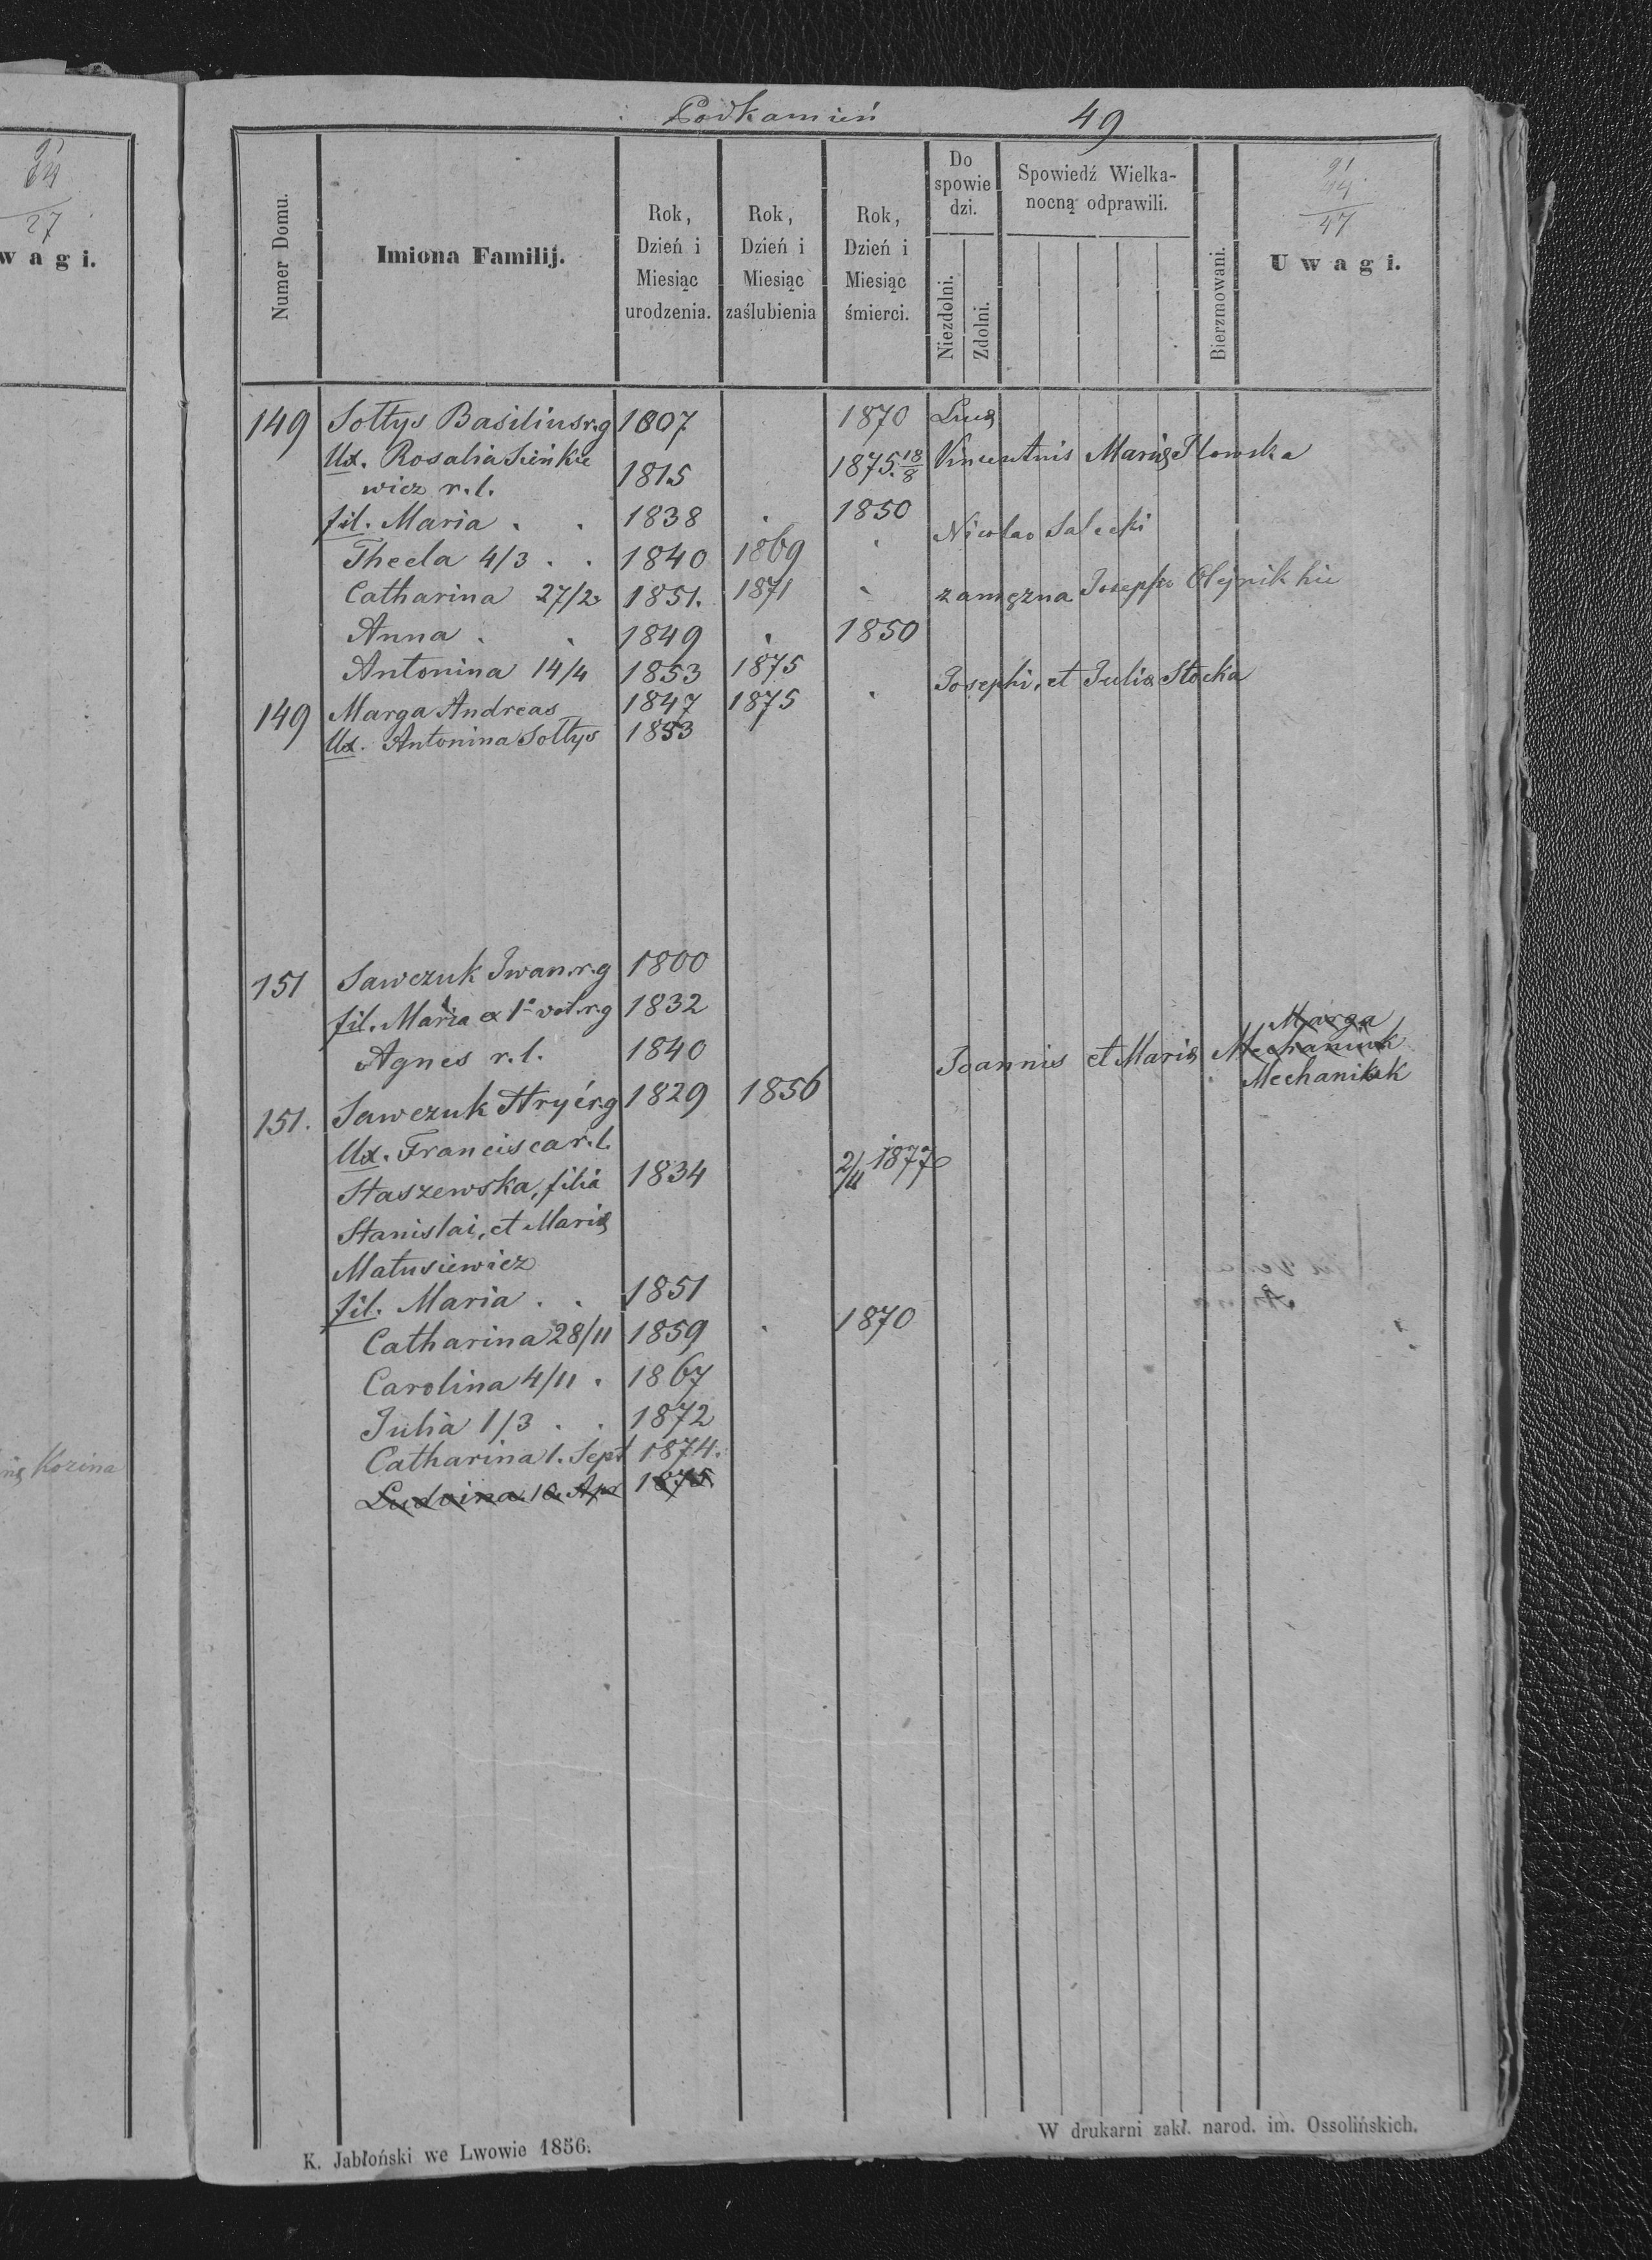 Podkamień 49
91
94
27
w a g i.
Numer Domu.
Imiona Familij.
Rok, Dzień i Miesiąc urodzenia.
Rok, Dzień i Miesiąc zaślubienia
Rok, Dzień i Miesiąc śmierci.
Do spowie dzi.
Niezdolni.
Zdolni.
Spowiedź Wielka-
nocną odprawili.
Bierzmowani.
91
94
47
U w a g i.
149 Sołtys Basilius r.g 1807 1870 Lucę
Ux. Rosalia Sieńkie
wicz r.l. 1815 1875 18/8 Vincentnis Marię
fil. Maria . . 1838 . 1850
Thecla 4/3 . . 1840 1869 Nicolao Salecki
Catharina 27/2 1851. 1871 zamężna Josepho Olejnik
Anna . . 1849 . 1850
Antonina 14/4 1853 1875
149 Marga Andreas 1847 1875 Josephi, et Julię Stocka
Ux. Antonina Sołtys 1853
151 Sawczuk Iwan r.g 1800
fil. Maria ex 1º vot. r.g 1832
Agnes r.l. 1840
Marga
Mechaniuk
151. Sawczuk Hryć r.g 1829 1856 Joannis et Marię Mechaniuk
Ux. Francisca r.l.
Staszewska, filia 1834 2/11 1877
Stanislai, et Marię
Matusiewicz
fil. Maria . . 1851
Catharina 28/11 1859 . 1870
Carolina 4/11 . 1867
Julia 1/3 . . 1872
Catharina 1. Sept 1874.
1875
Kozina
K. Jabłoński we Lwowie 1856.
W drukarni zakł. narod. im. Ossolińskich.